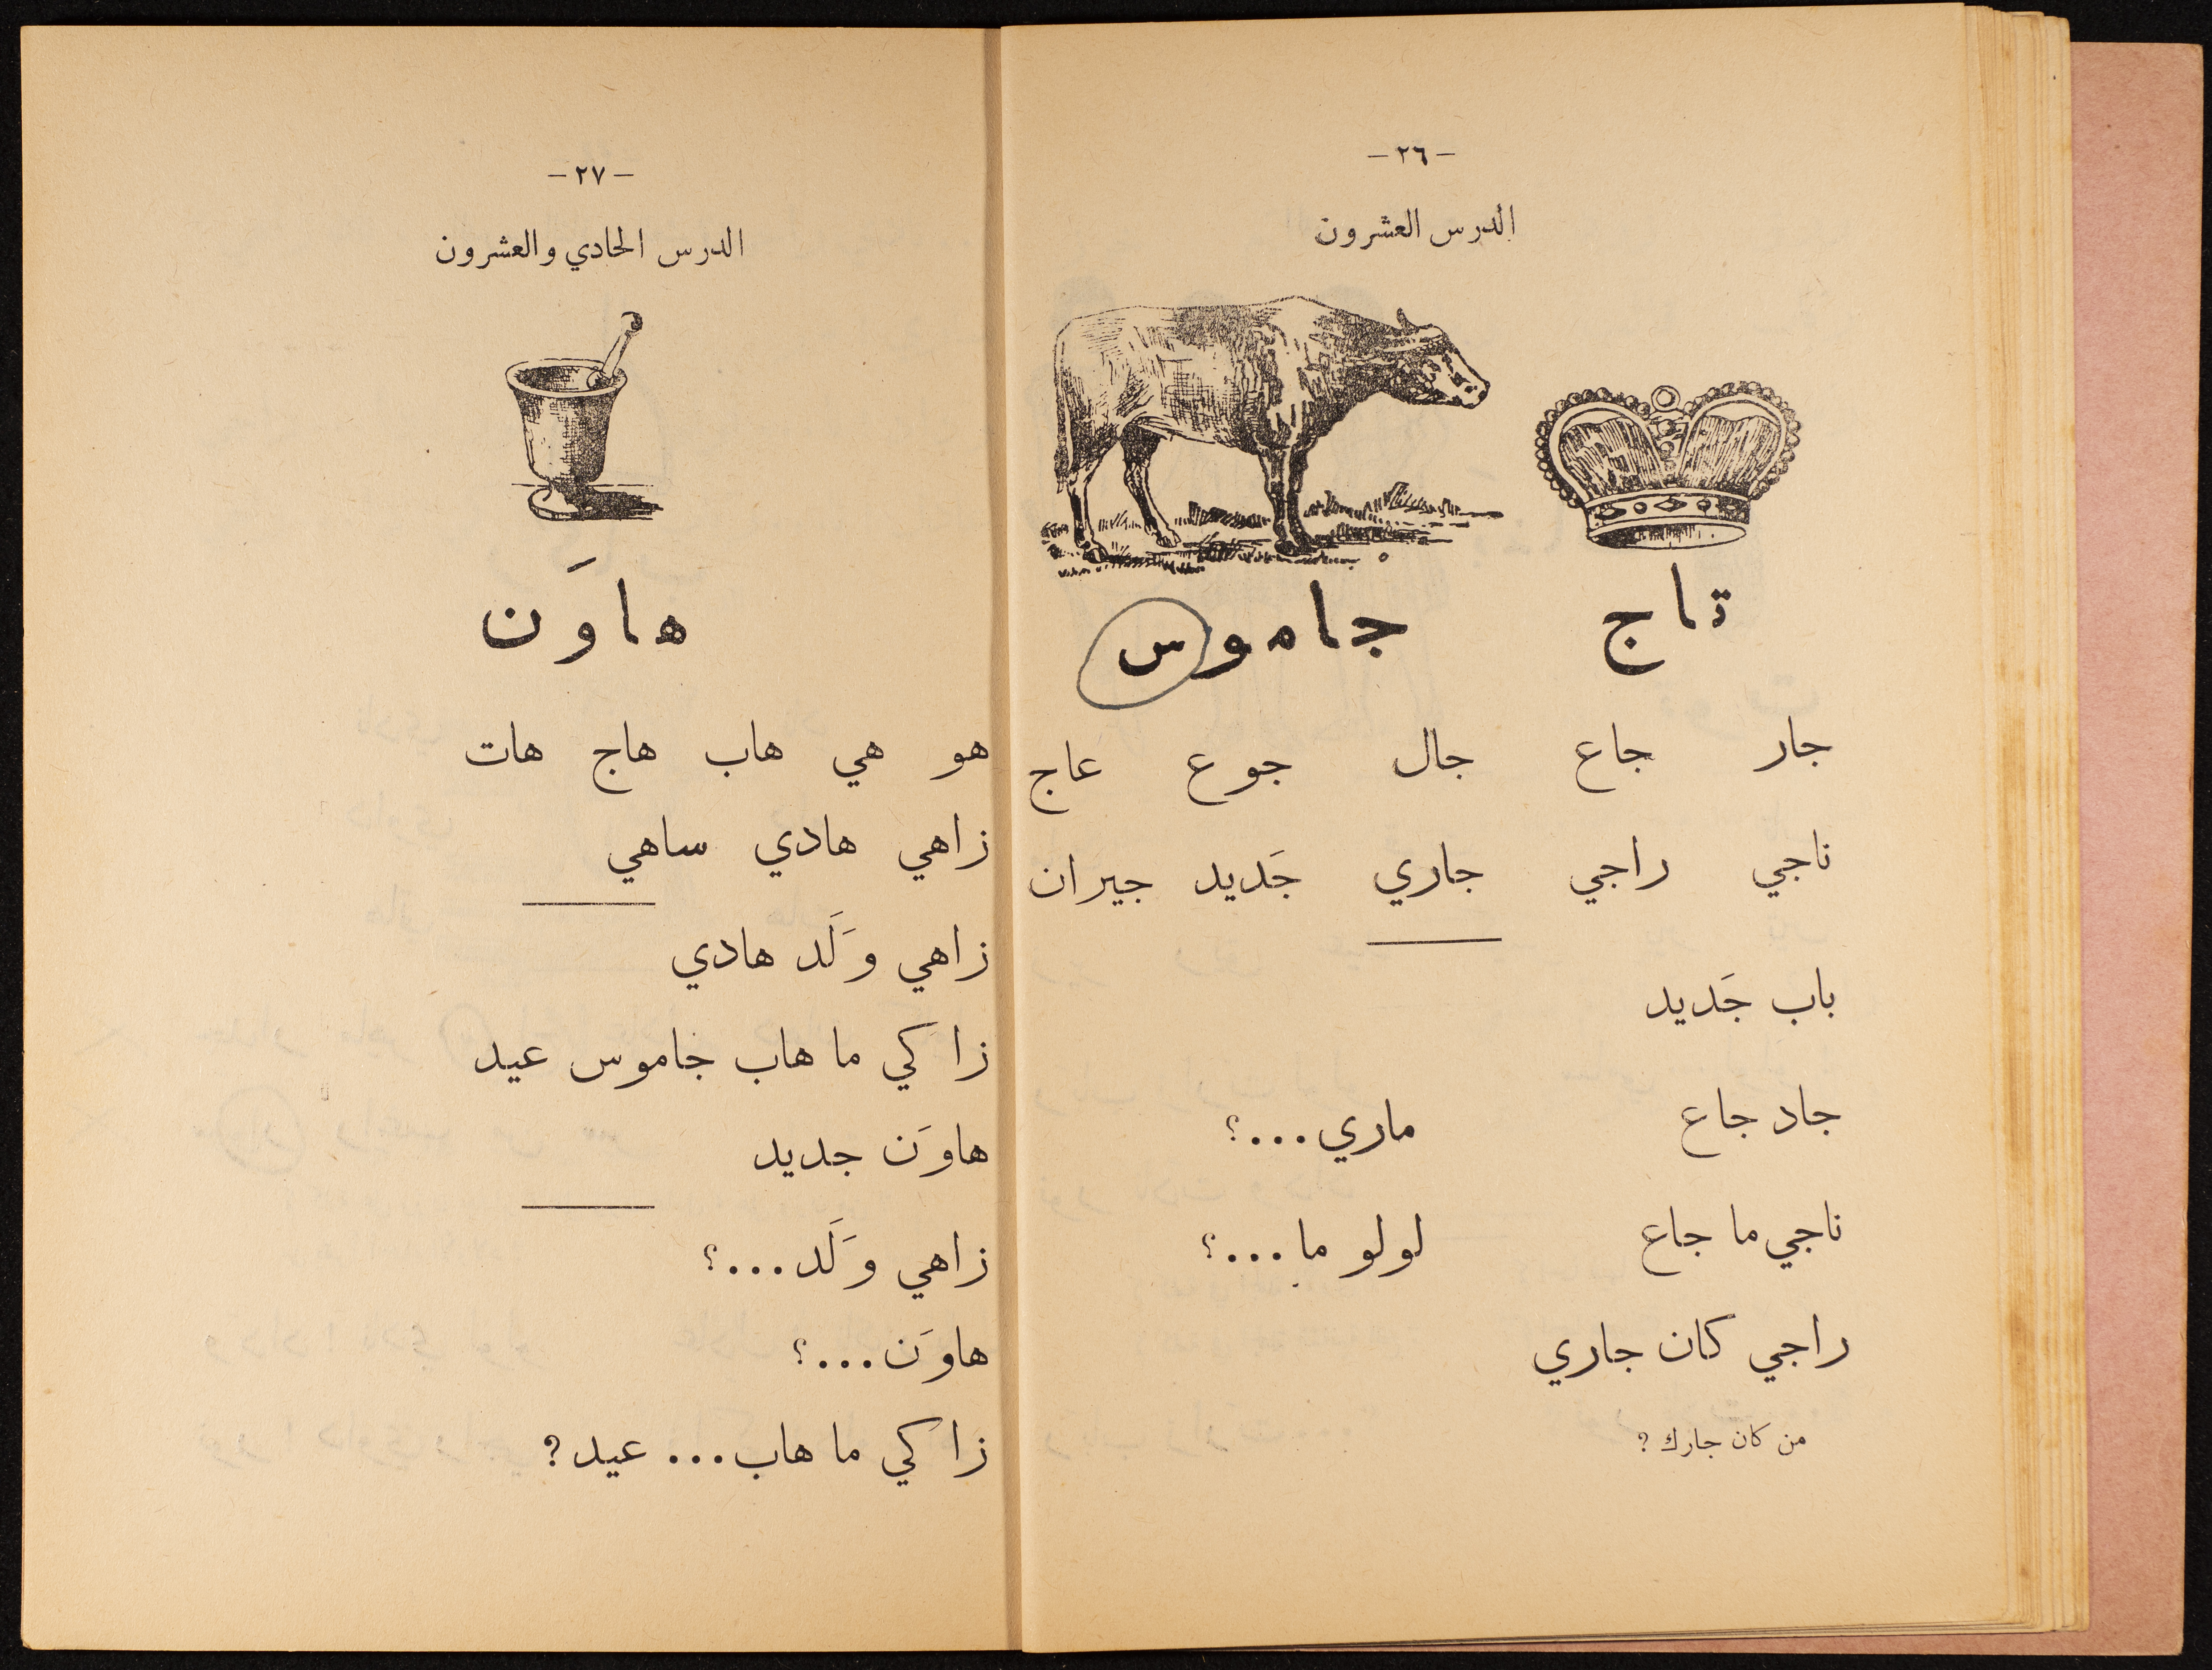 – ٢٦ –
الدرس العشرون
تاج جاموس
جار جاع جال جوع عاج
ناجي راجي جاري جَديد جيران
باب جَديد
جاد جاع ماري...؟
ناجي ما جاع لولو ما...؟
راجي كان جاري
من كان جارك ?
– ٢٧ –
الدرس الحادي والعشرون
هاوَن
هو هي هاب هاج هات
زاهي هادي ساهي
زاهي وَلَد هادي
زاكي ما هاب خاموس عيد
هاوَن جديد
زاهي وَلَد...؟
هاوَن...؟
زاكي ما هاب... عيد ?